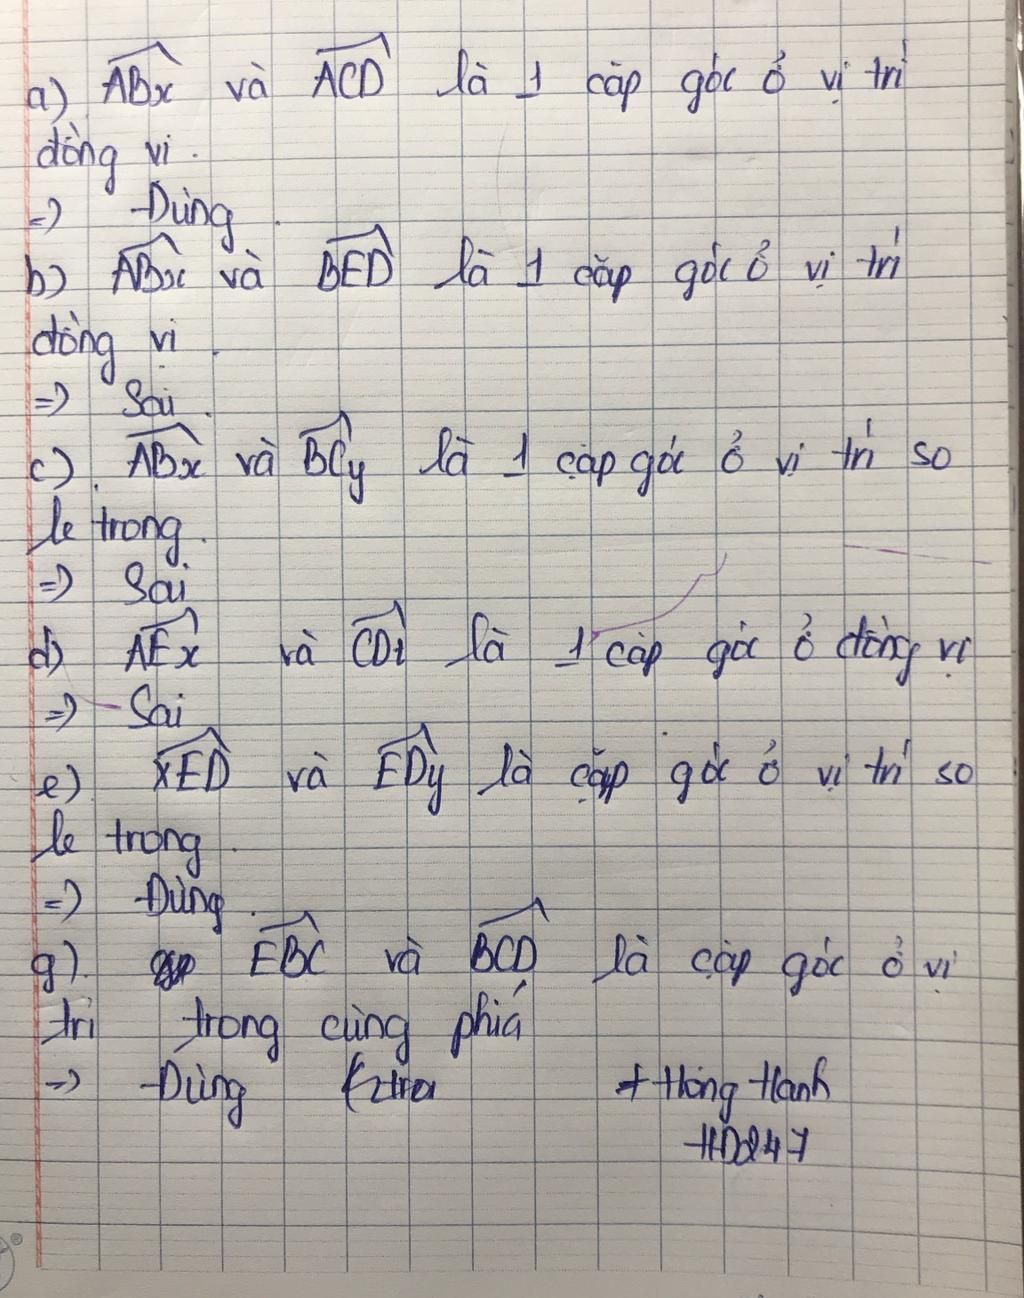 a) ABx và ACD là 1 cặp góc ở vị trí
đồng vị.
=> Đúng.
b) ABx và BED là 1 cặp góc ở vị trí
đồng vị.
=> Sai.
c) ABx và BCy là 1 cặp góc ở vị trí so
le trong.
=> Sai
d) AEx và CDz là 1 cặp góc ở đồng vị
=> Sai
e) xED và EDy là cặp góc ở vị trí so
le trong.
=> Đúng.
g) EBC và BCD là cặp góc ở vị
trí trong cùng phía
=> Đúng + Hồng Hạnh
HD247